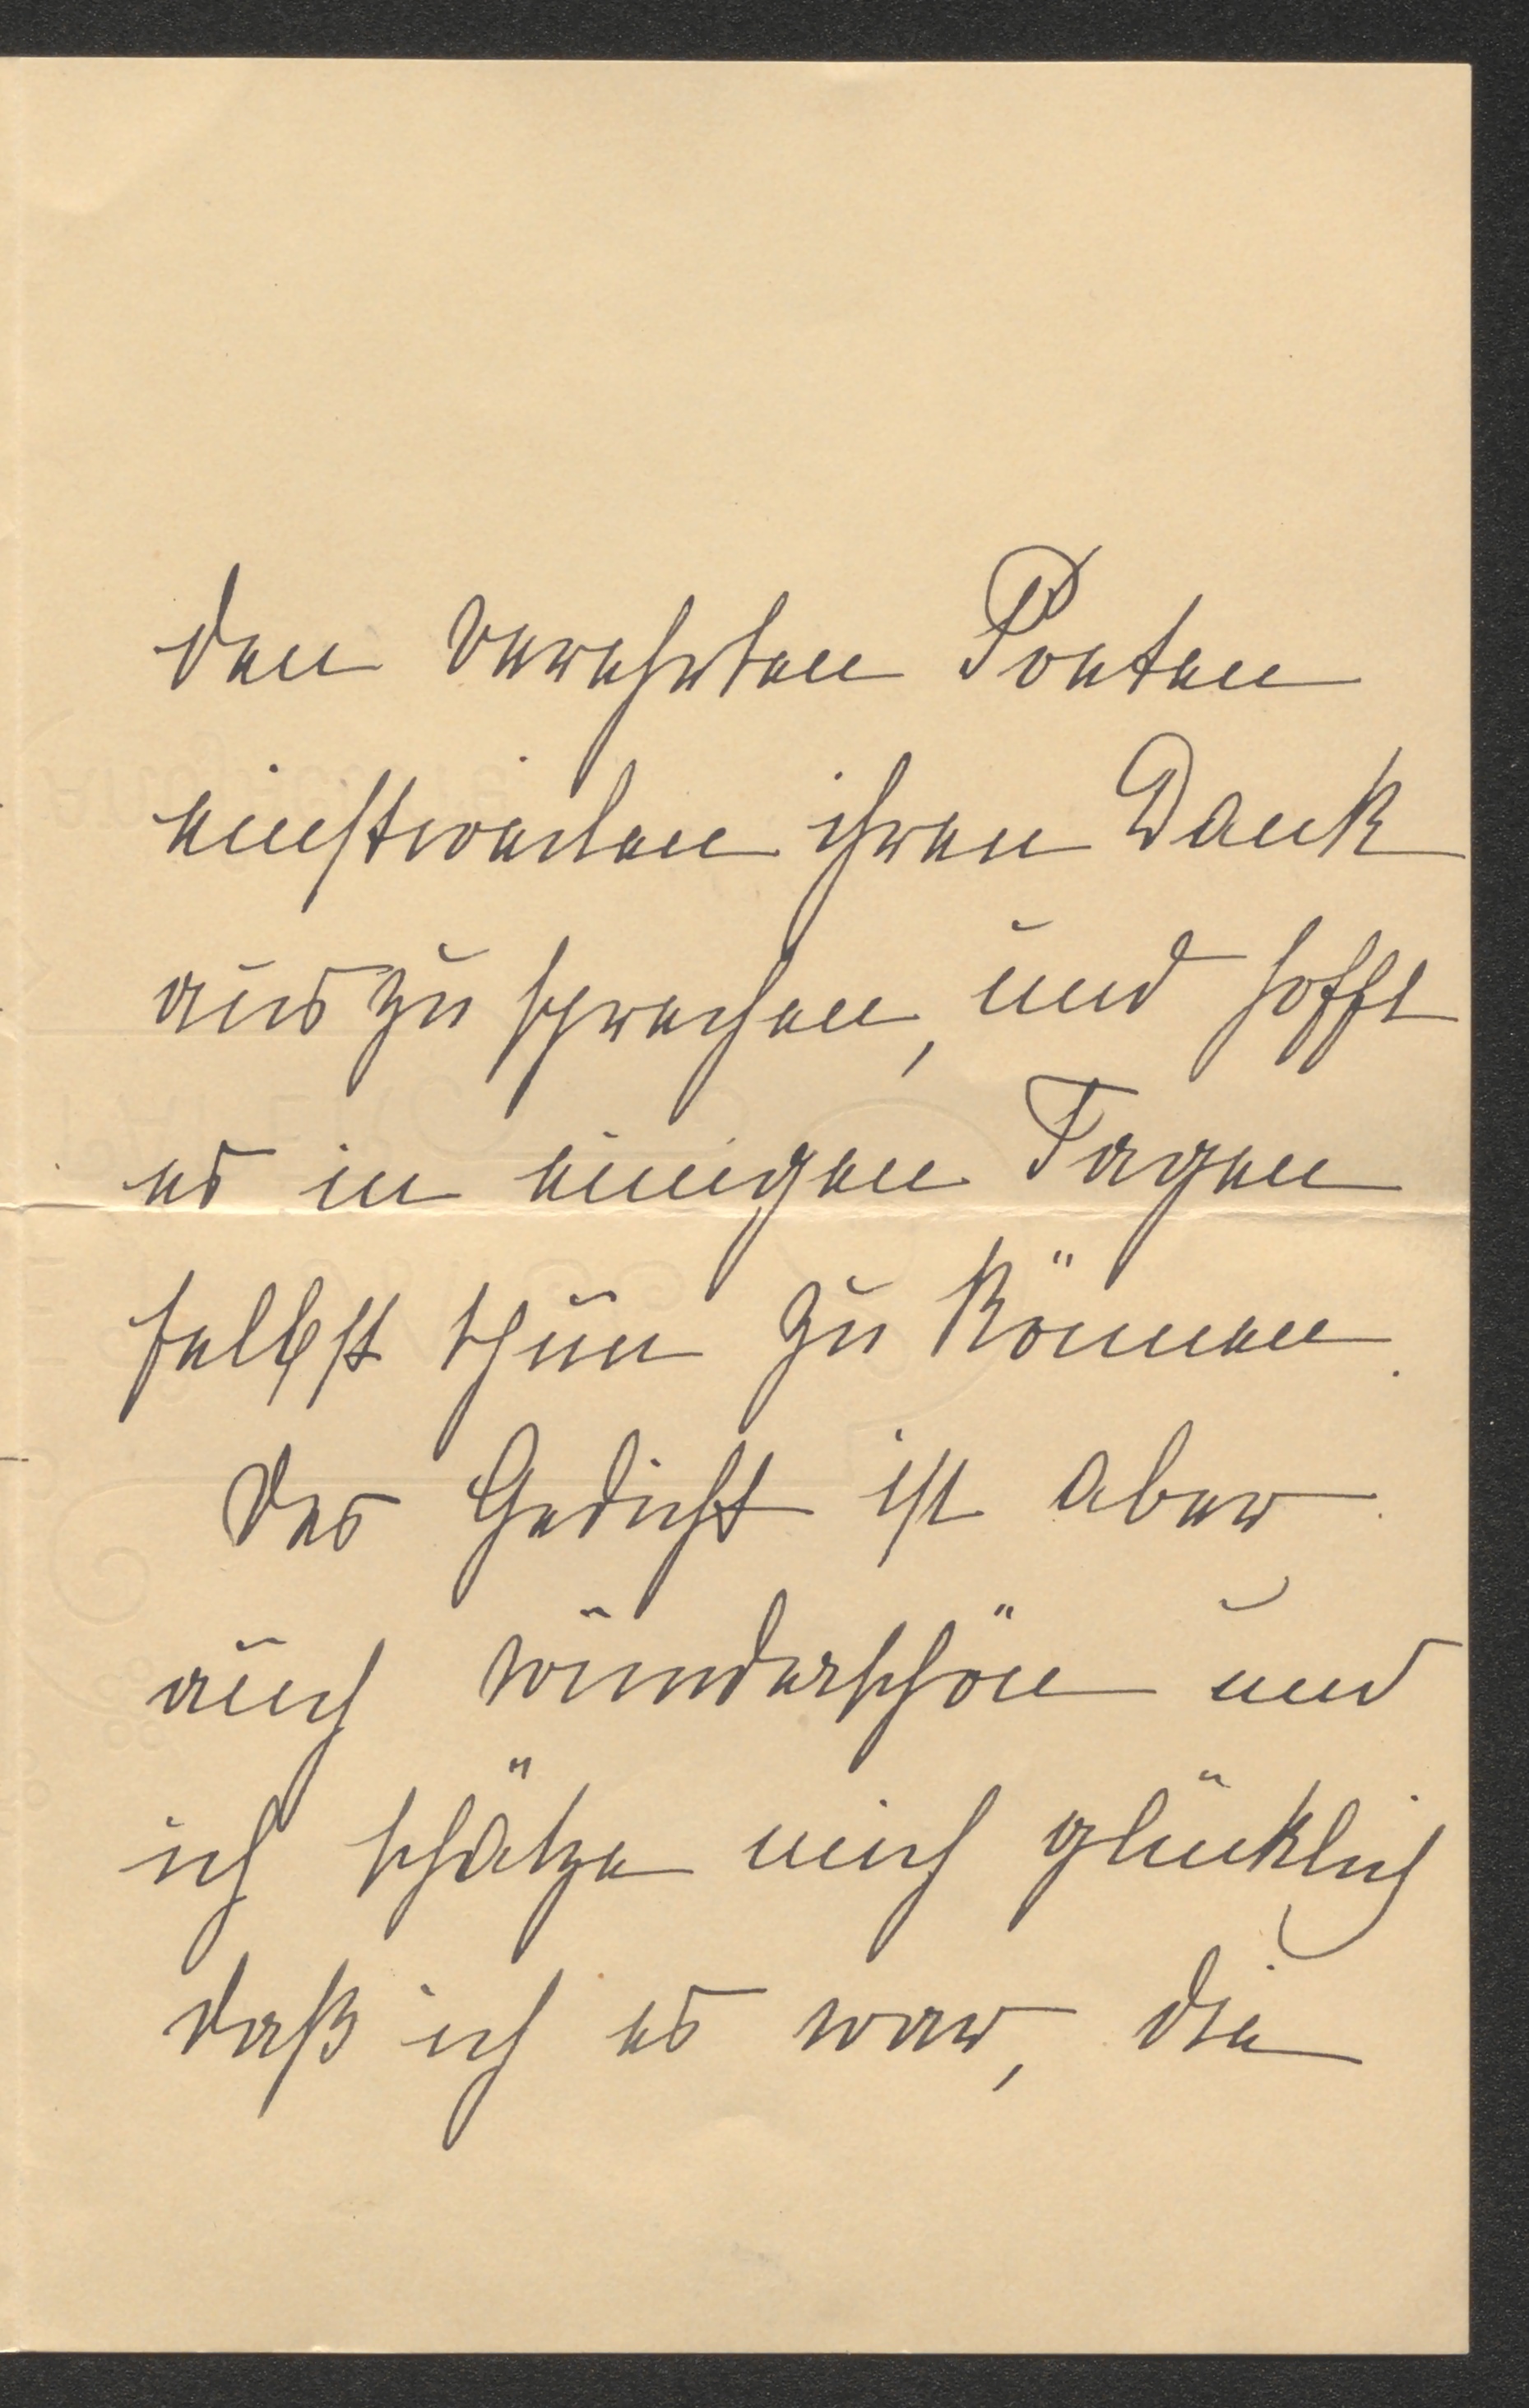 den verehrten Poeten
einstweilen ihren Dank
auszusprechen, und hofft
es in einigen Tagen
selbst thun zu können.
Das Gedicht ist aber
auch wunderschön und
ich schätze mich glücklich
daß ich es war, die